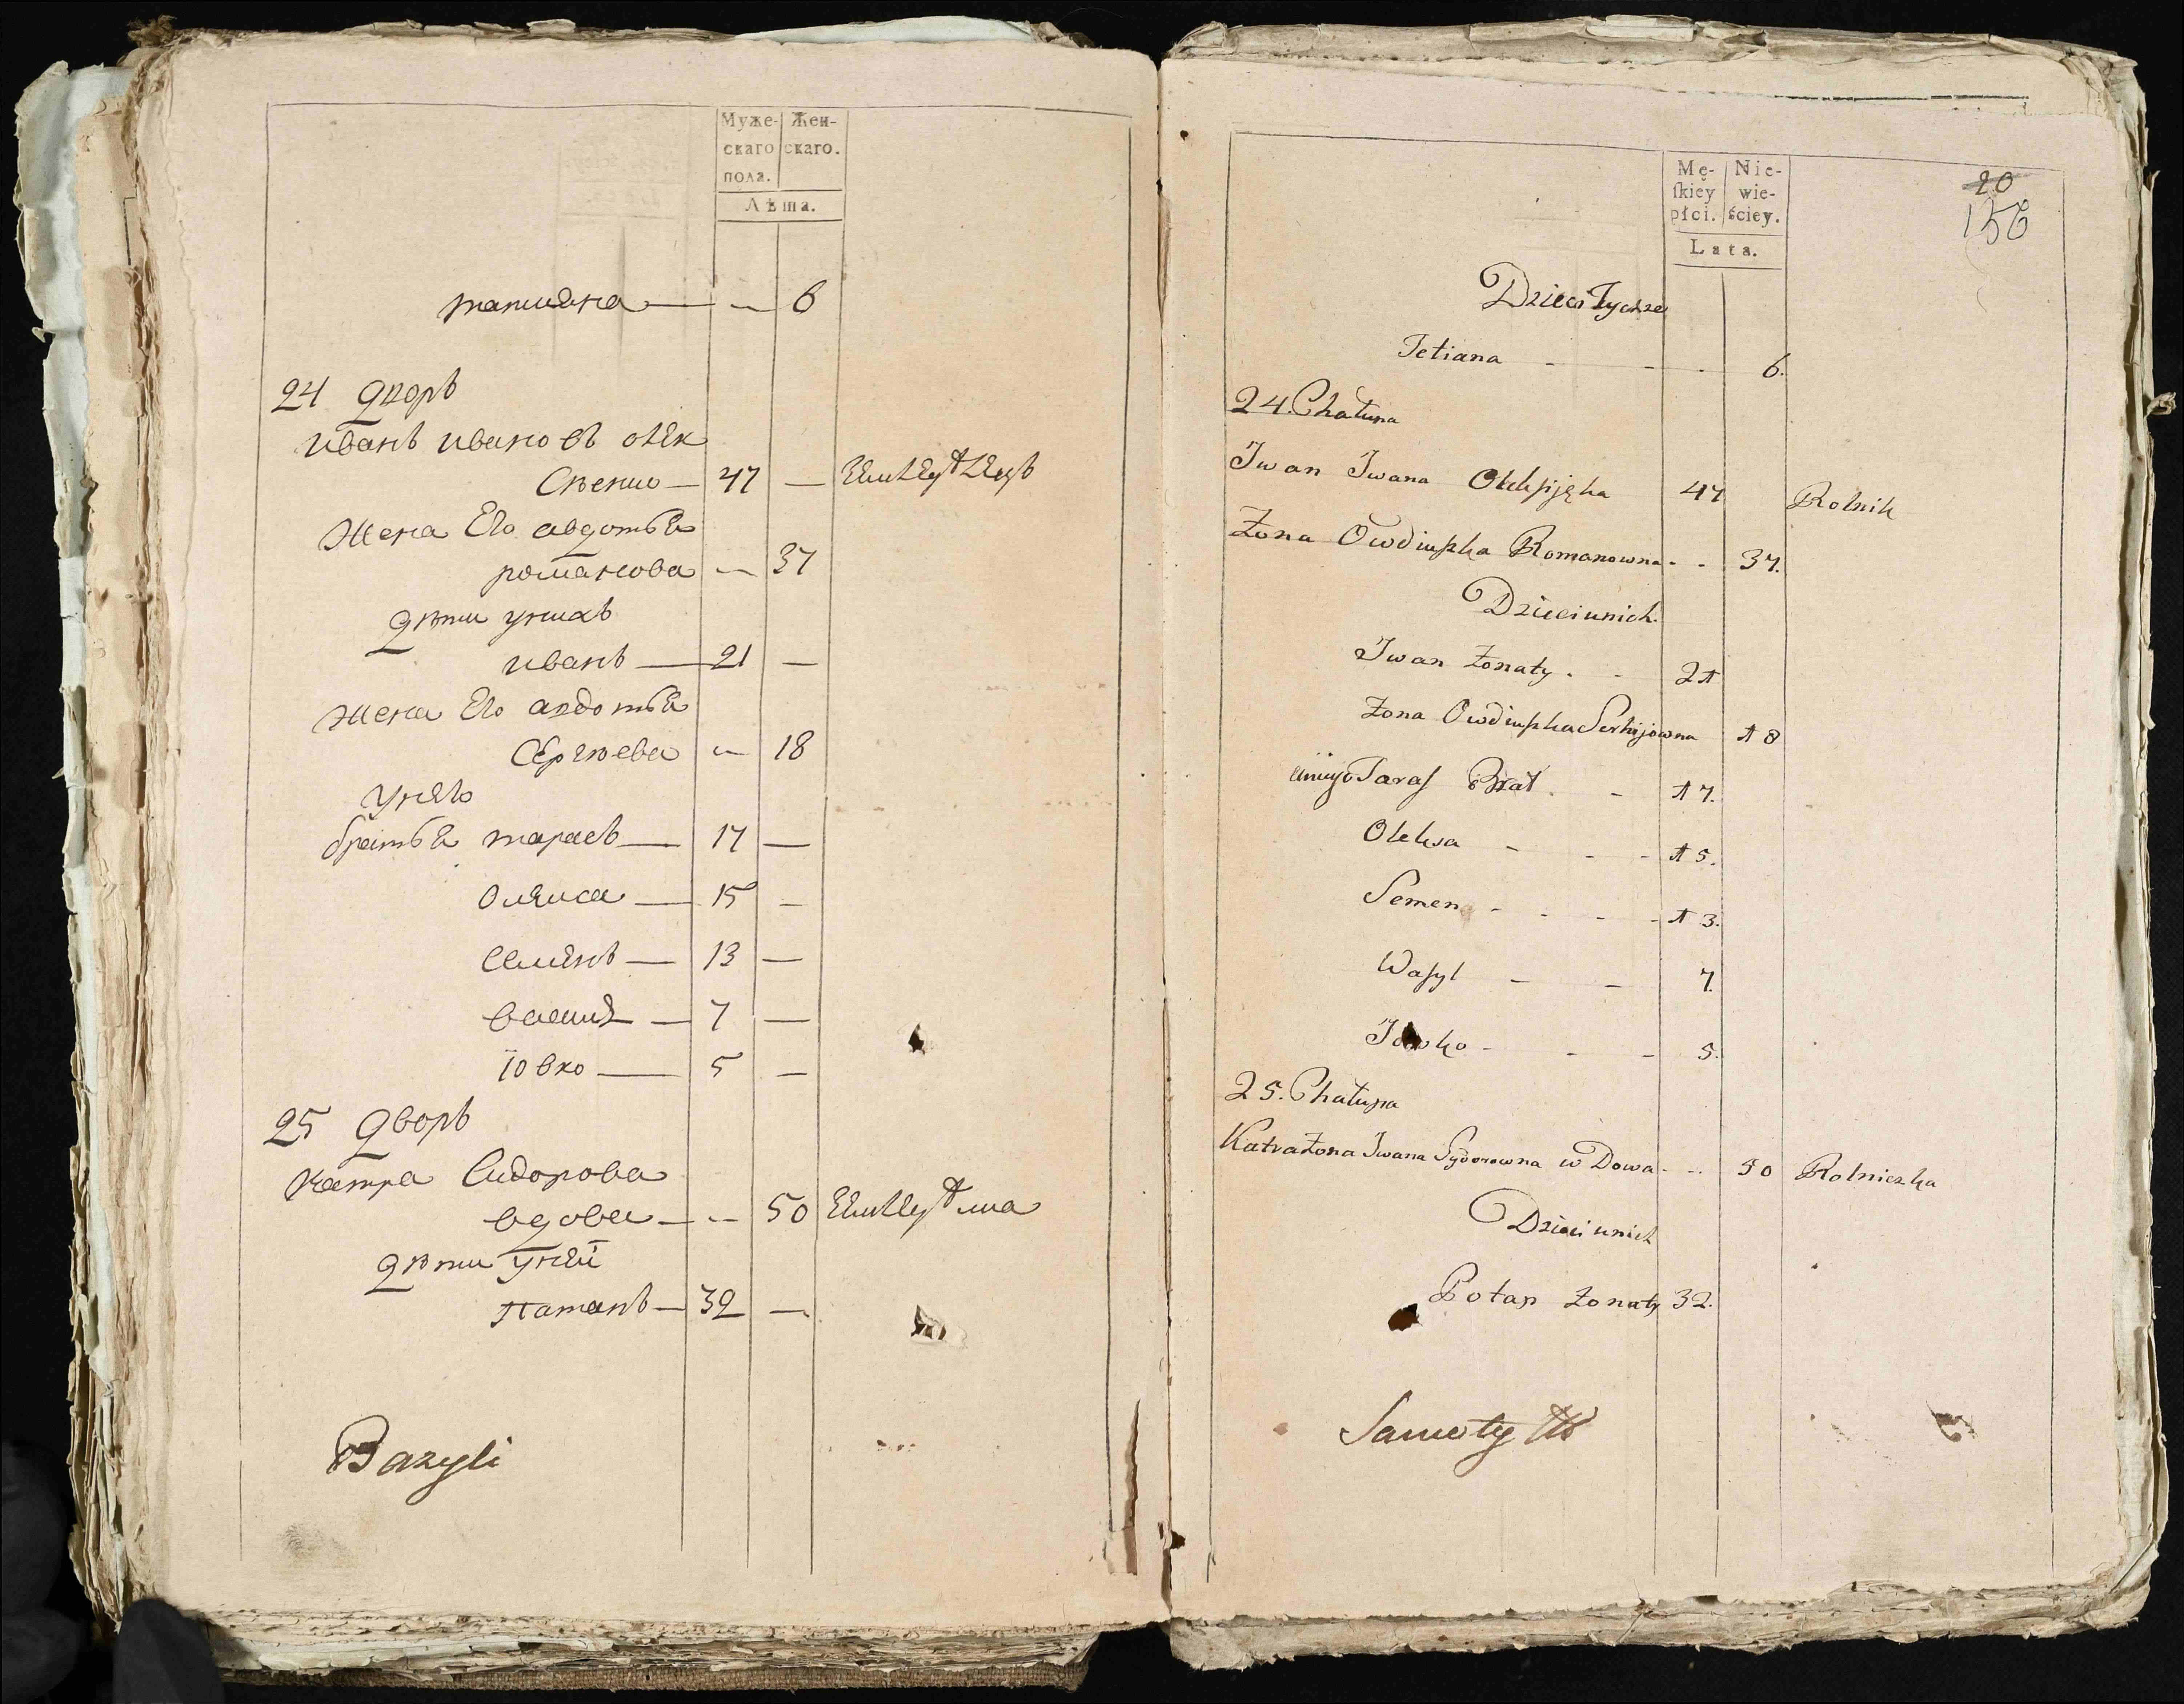 Муже-
скаго
пола.
Жен-
скаго.
Лѣта.
татияна — — 6
24 дворъ
иванъ ивановъ олек
Сѣенко — 47 — Землед Лецъ
жена Его авдотья
романова — 37
дѣти унихъ
иванъ — 21 —
жена Его авдотья
Сергѣева — 18
унего
братья тарасъ — 17 —
Олекса — 15 —
семенъ — 13 —
василь — 7 —
Ювко — 5 —
25 дворъ
катра Сидорова
вдова — — 50
дѣти уней
Патапъ — 32 —
Bazyli
Mę-
ſkiey
płci.
Nie-
wie-
ściey.
Lata.
20
156
Dzieci Tychże
Tetiana - - - 6.
24. Chałupa
Jwan Jwana Oleksijęka 47 Rolnik
Żona Owdiuszka Romanowna - - 37.
Dzieci unich.
Jwan żonaty. - 21
Żona Owdiuszka Serhijowna 18
Taraſ Brat. - 17.
Oleksa - - - 15.
Semen - - - - 13.
Waſyl - - 7.
Jowko - - - 5.
25. Chałupa
Katra żona Jwana Sydorowna wDowa - - 50 Rolniczka
Dzieci unich
Potap żonaty 32.